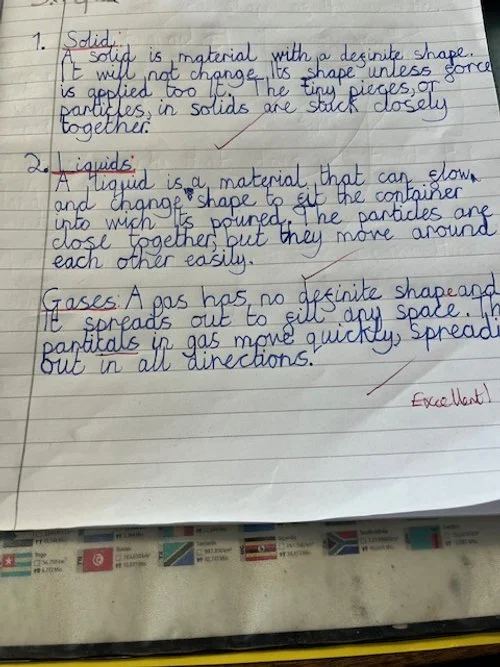 1. Solid:
A solid is material with a definite shape.
It will not change Its shape unless force
is applied too It. The tiny pieces, or
particles, in solids are stuck closely
together.
2. Liquids:
A liquid is a material that can flow
and change shape to fit the container
into wich Its poured. The particles are
close together, but they move around
each other easily.
Gases: A gas has no definite shape and
It spreads out to fill any space.
partitals in gas move quickly, spreadi
out in all directions.
Excellent!
Togo
Tunisia
Tanzania
Uganda
South Africa
Zambia